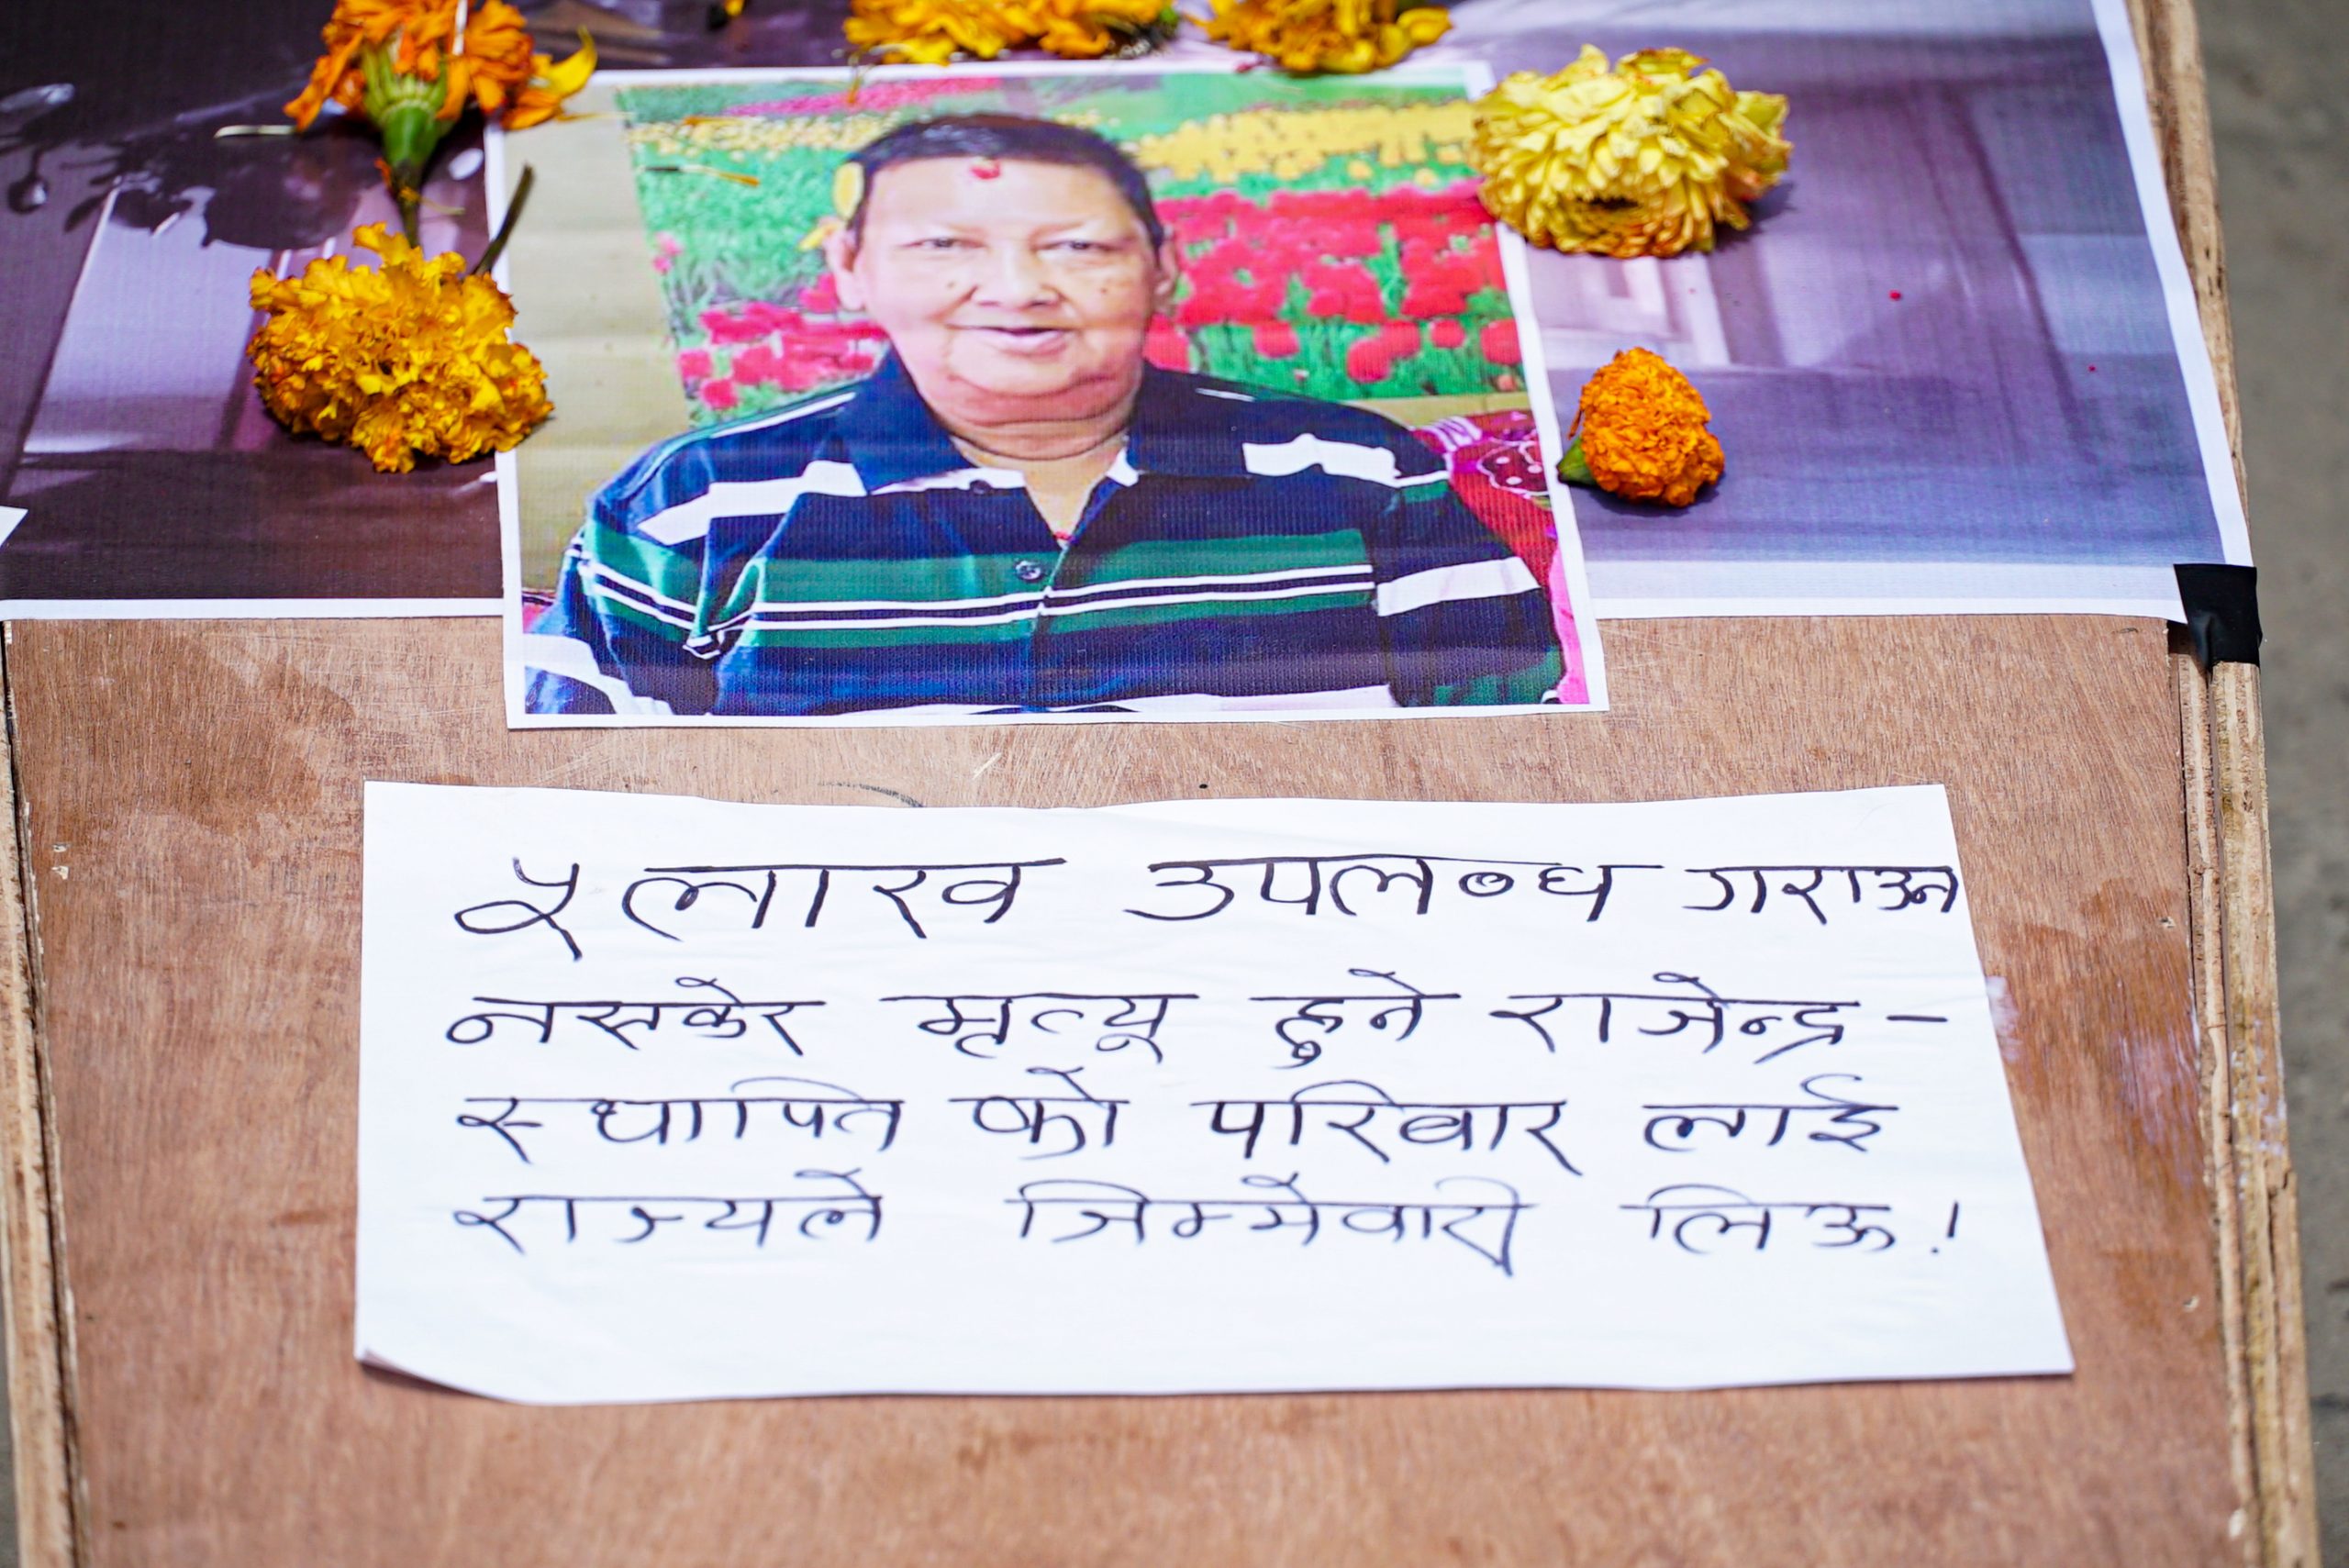 ५ लाख उपलब्ध गराउन
नसकेर मृत्यू हुने राजेन्द्र -
स्थापित को परिवार लाई
राज्यले जिम्मेवारी लिऊ !